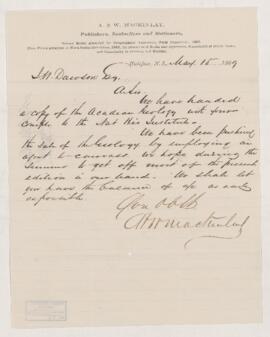 A. & W. MACKINLAY,
Publishers, Booksellers and Stationers,
Halifax, N.S., May 15 1869
J. W. Dawson Esq
We have handed
a copy of the Acadian Geology with your
to the Nat His Institute.
We have been pushing
the sale of the Geology by employing an
agent to canvass. We hope during the
summer to get off most of the present
edition in our hand. We shall let
you have the balance of a/c as early
as possible
A & W Mackinlay